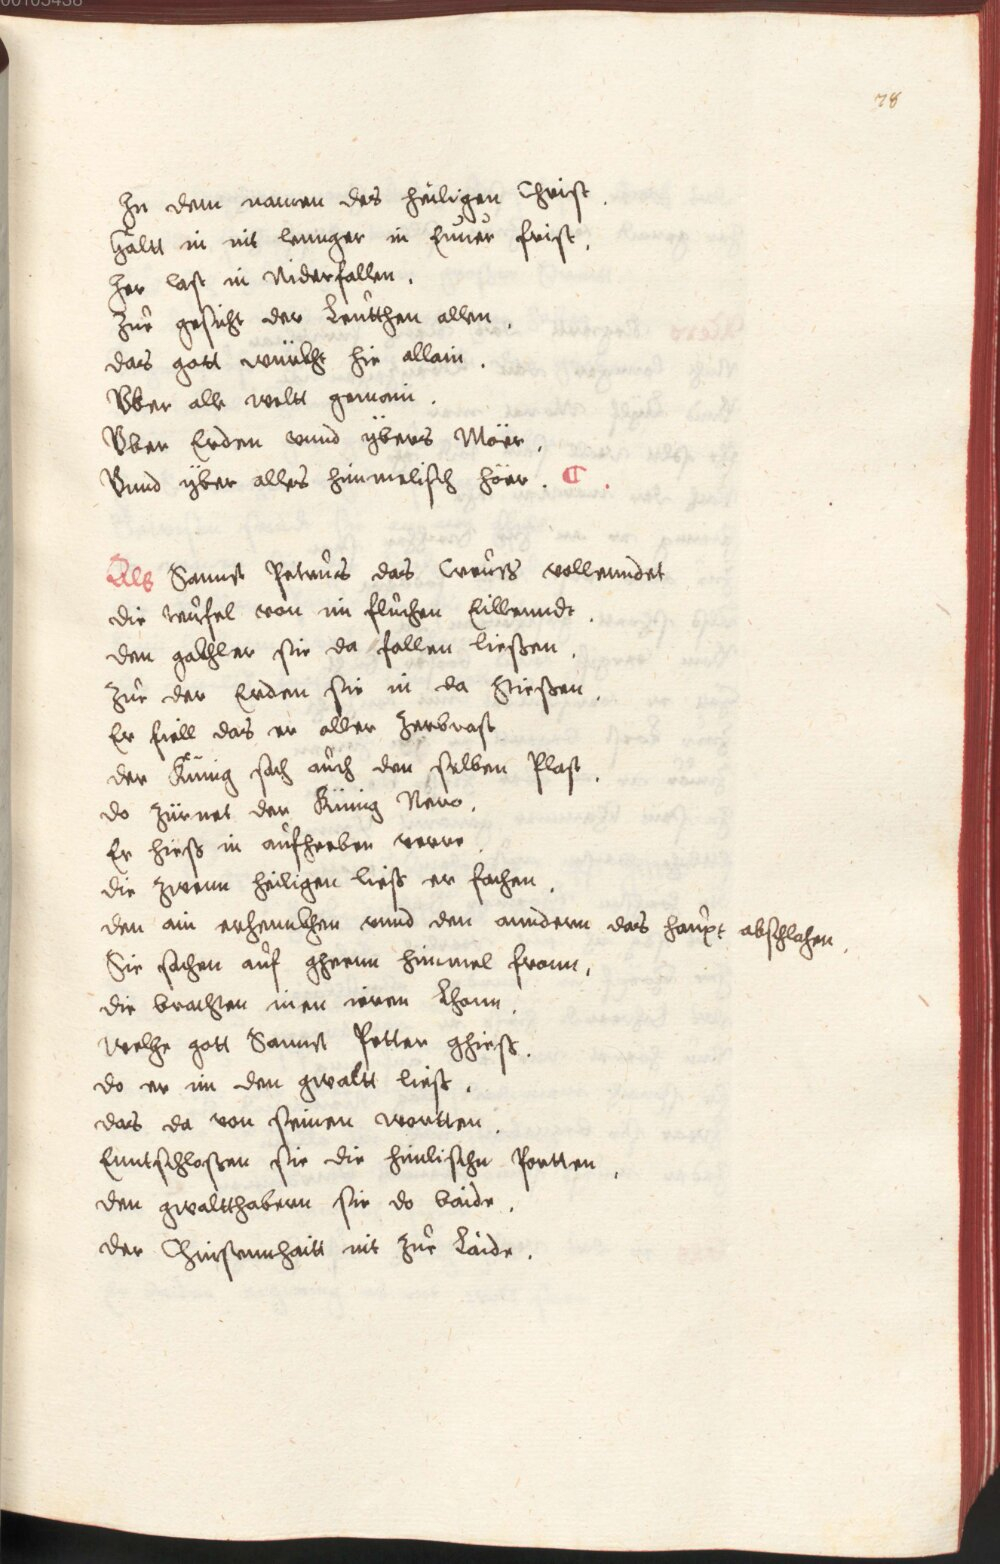 00103438
78
In dem namen des heiligen Christ.
Haltt in nit lennger in Euuer frist.
Her last in Niderfallen.
Zue gesicht der Leutthen allen.
das gott würkht hie allain.
Vber alle weltt gemain.
Vber Erden vnnd ÿbers Mör.
Vnnd ÿber alles himmelisch hör. C.
Als Sannt Petrus das Creuz vollenndet
die teufel von im fluchen Eillenndt.
den gakhler sie da fallen ließen.
Zue der Erden sie in da Stießen.
Er fiell das er aller Zerbrast
der Künig sach auch den selben Plast.
do zürnet der Künig Nero.
Er hieß in aufheeben verre.
die zwenn heiligen ließ er fachen.
den ain erhennkhen vnnd den anndern das haupt abschlahen.
Sie sachen auf gheenn himmel fronn.
die brachten inen ieren Lhonn.
welhe gott Sannt Petter ghieß.
do er im den gwaltt ließ.
das da von seinen wortten.
Enntschloßen sie die himlischn Portten.
den gwaltthabern sie do baide.
der Christennhaitt nit zue Laide.